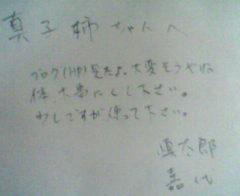 真子姉ちゃんへ
ブログ(HP)見たよ。大変そうやね
体、大事にして下さい。
少しですが使って下さい。
慎太郎
嘉代